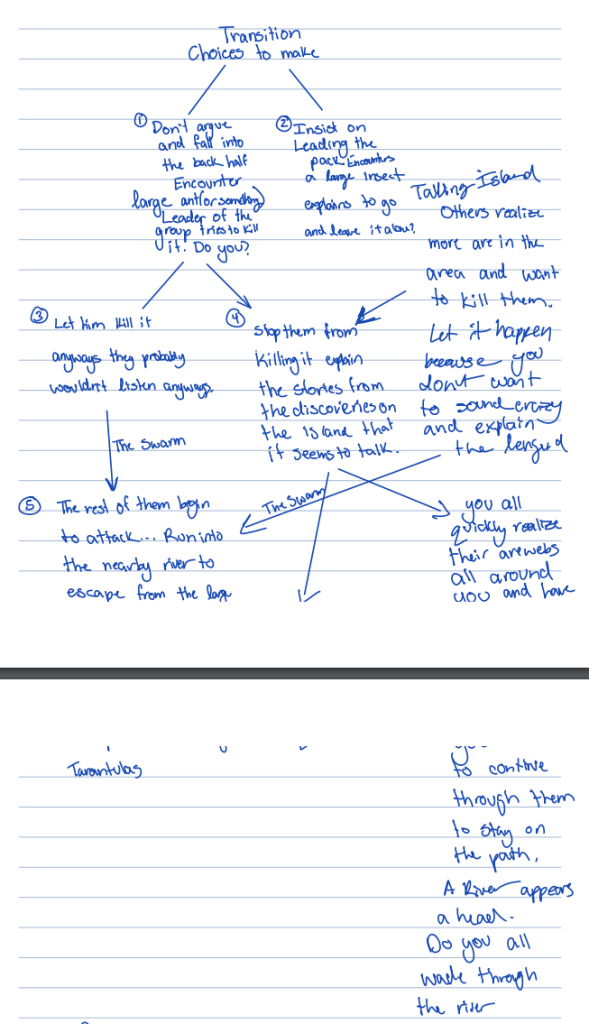 Transition
Choices to make
① Don't argue
and fall into
the back half
Encounter
large ant(or something)
Leader of the
group tries to kill
it! Do you?
② Insist on
Leading the
pack Encounters
a large insect
explains to go
and leave it alow?
Talking Island
Others realize
more are in the
area and want
to kill them.
Let it happen
because you
donut want
to sound crazy
and explain
the lengud
③ Let him kill it
anyways they probably
wouldn't listen anyways.
④
Stop them from
killing it explain
the stories from
the discoveries on
the Island that
it seems to talk.
The Swarm
The Swarm
⑤ The rest of them begin
to attack... Run into
the nearby river to
escape from the large
you all
quickly realize
their arewebs
all around
you and have
Tarantulas
to continue
through them
to stay on
the path,
A River appears
a head.
Do you all
wade through
the river